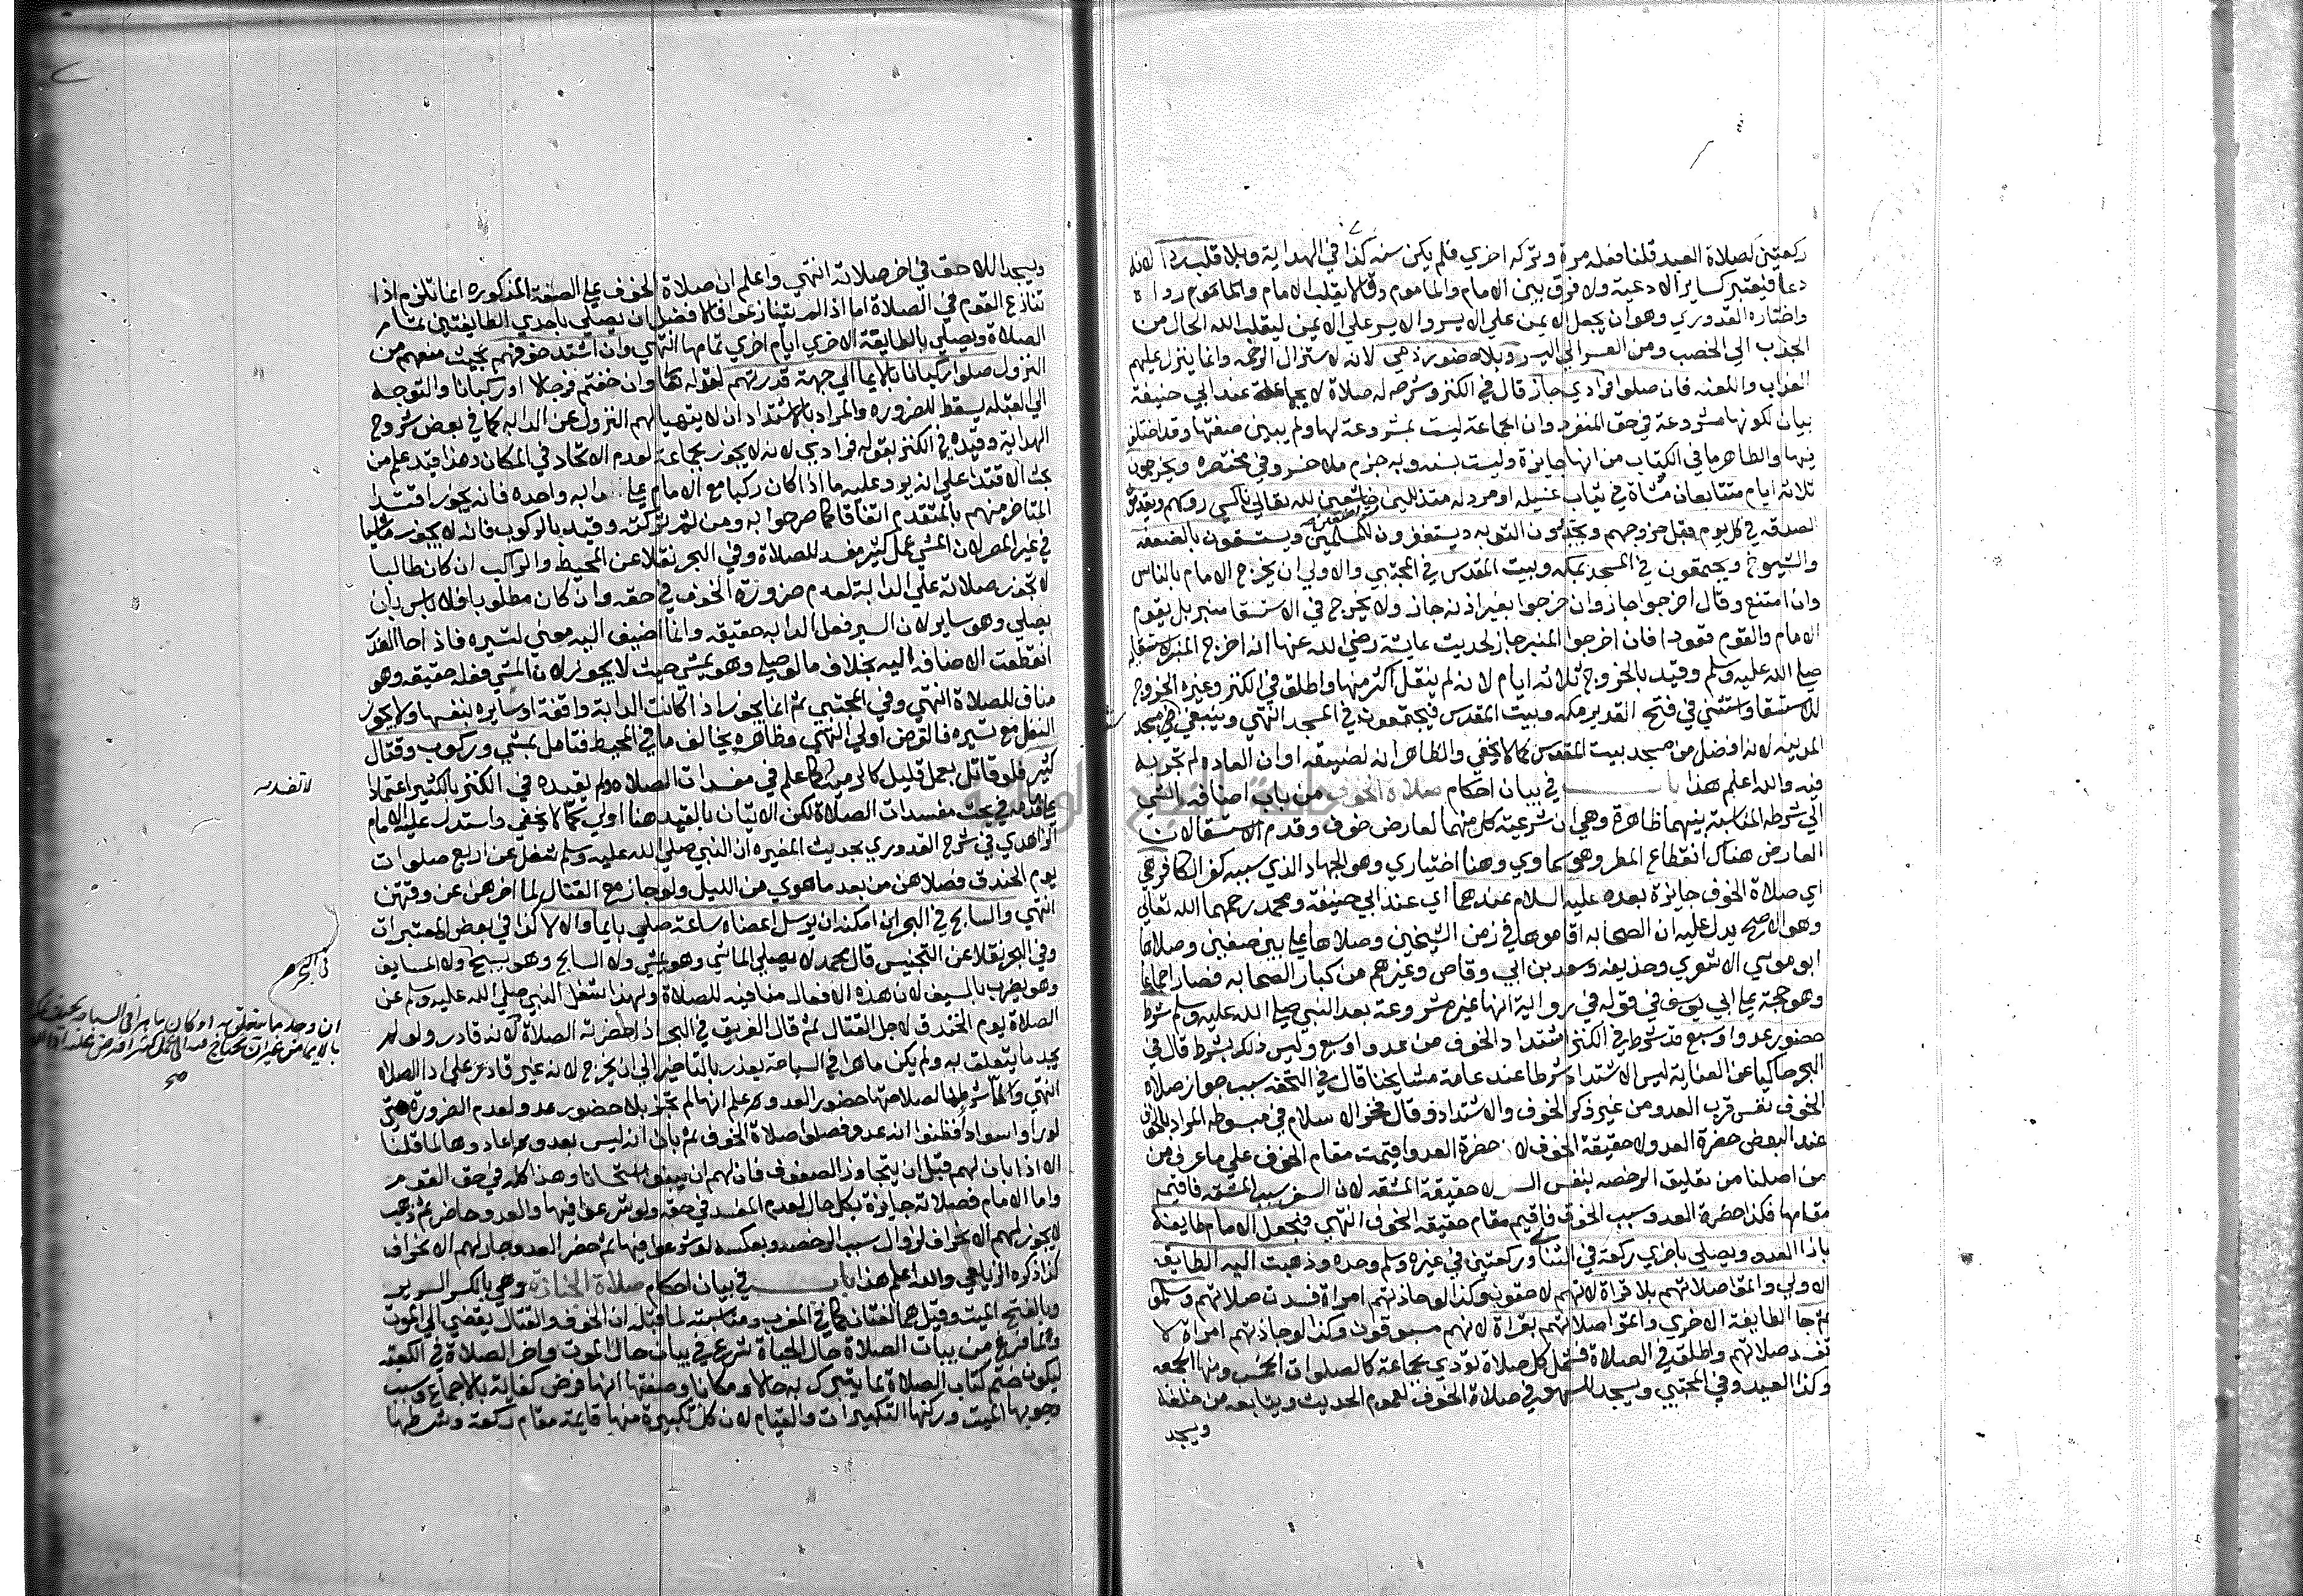 ركعتين لصلاة العيد قلنا فعله مرة وتركه اخري فلم يكن سنه كذا في الهداية وبلا قلب رداء لانه
دعا فيعتبر كساير الادعية ولا فرق بين الامام والماموم وقالا يقلب الامام والماموم رداه
واختاره القدوري وهو ان يجعل الايمن علي الايسر والايسر علي الايمن ليقلب الله الحال من
الجدب الي الخصب ومن العسر الي اليسر وبلا حضور ذمي لانه لاستنزال الرحمه وانما ينزل عليهم
العذاب واللعنه فان صلوا فرادي جاز قال في الكنز وشرحه له صلاة لا بجماعة عند ابي حنيفة
بيان لكونها مشروعة في حق المنفرد وان الجماعة ليست بمشروعة لها ولم يبين صفتها وقد اختلف
فيها والظاهر ما في الكتاب من انها جايزة وليست بسنه وبه جزم ملا خسرو في مختصره ويخرجون
ثلاثة ايام متتابعات مشاة في ثياب غسيله او مرقعه متذللين خاشعين لله تعالي ناكسي روسهم ويقدمون
الصدقه في كل يوم قبل خروجهم ويجددون التوبه ويستغفرون للمسلمين ويستسقون بالضعفه
والشيوخ ويجتمعون في المسجد بمكه وبيت المقدس في المجتبي والاولي ان يخرج الامام بالناس
وان امتنع وقال اخرجوا جاز وان خرجوا بغير اذنه جاز ولا يخرج في الاستسقا منبر بل يقوم
الامام والقوم قعود فان اخرجوا المنبر جاز لحديث عايشة رضي الله عنها انه اخرج المنبر لاستسقايه
صلي الله عليه وسلم وقيد بالخروج ثلاثه ايام لانه لم ينقل اكثر منها واطلق في الكنز وغيره الخروج
للاستسقا واستثني في فتح القدير مكه وبيت المقدس فيجتمعون في المسجد انتهي وينبغي في مسجد
المدينه لانه افضل من مسجد بيت المقدس كما لا يخفي والظاهر انه لضيقه او ان العاده لم تجر به
فيه والله اعلم هذا باب في بيان احكام صلاة الخوف من باب اضافه الشي
الي شرطه المناسبة بينهما ظاهرة وهي ان شرعية كل منهما لعارض خوف وقدم الاستسقا لان
العارض هناك انقطاع المطر وهو سماوي وهنا اختياري وهو الجهاد الذي سببه كفر الكافر هي
اي صلاة الخوف جايزة بعده عليه السلام عندهما اي عند ابي حنيفة ومحمد رحمهما الله تعالي
وهو الاصح يدل عليه ان الصحابه اقاموها في زمن الشيخين وصلاها علي بين صفين وصلاها
ابو موسي الاشعري وحذيفه وسعد بن ابي وقاص وغيرهم من كبار الصحابه فصار اجماعا
وهو حجة علي ابي يوسف في قوله في رواية انها غير مشروعة بعد النبي صلي الله عليه وسلم شرط
حضور عدو او سبع قد شرط في الكنز اشتداد الخوف من عدو او سبع وليس ذلك بشرط قال في
البحر حاكيا عن العناية ليس الاشتداد شرطا عند عامة مشايخنا قال في التحفه سبب جواز صلاة
الخوف نفس قرب العدو من غير ذكر الخوف والاشتداد وقال فخر الاسلام في مبسوطه المراد بالخوف
عند البعض حضرة العدو لا حقيقة الخوف لان حضرة العدو اقيمت مقام الخوف علي ما عرف من
من اصلنا من تعليق الرخصه بنفس السفر لا حقيقة المشقه لان السفر سبب المشقه فاقيم
مقامها فكذا حضرة العدو سبب الخوف فاقيم مقام حقيقه الخوف انتهي فيجعل الامام طايفة
بازاء العدو ويصلي باخري ركعة في الثنائي وركعتين في غيره وسلم وحده وذهبت اليه الطايفه
الاولي واتموا صلاتهم بلا قراة لانهم لاحقون وكذا لو حاذتهم امراة فسدت صلاتهم وسلموا
ثم جا الطايفة الاخري واتموا صلاتهم بقراة لانهم مسبوقون وكذا لو حاذتهم امراة لا
تفسد صلاتهم واطلق في الصلاة فشمل كل صلاة تودي بجماعة كالصلوات الخمس ومنها الجمعه
وكذا العيد وفي المجتبي ويسجد للسهو في صلاة الخوف لعموم الحديث ويتابعه من خلفه
ويسجد
ويسجد اللاحق في اخر صلاته انتهي واعلم ان صلاة الخوف علي الصفة المذكوره انما تلزم اذا
تنازع القوم في الصلاة اما اذا لم يتنازعوا فالافضل ان يصلي باحدي الطايفتين تمام
الصلاة ويصلي بالطايفة الاخري امام اخري تمامها انتهي وان اشتد خوفهم بحيث منعهم من
النزول صلوا ركبانا بالايما الي جهة قدرتهم لقوله تعالي وان خفتم فرجالا او ركبانا والتوجه
الي القبلة يسقط للضروره والمراد بالاشتداد ان لا يتهيا لهم النزول عن الدابه كما في بعض شروح
الهداية وقيده في الكنز بقوله فرادي لانه لا يجوز بجماعة لعدم الاتحاد في المكان وهذا قيد علم من
بحث الاقتدا علي انه يرد عليه ما اذا كان راكبا مع الامام علي دابه واحده فانه يجوز اقتدا
المتاخر منهم بالمتقدم اتفاقا كما صرحوا به ومن ثم تركته وقيد بالركوب فانه لا يجوز ماشيا
في غير المصر لان المشي عمل كثير مفسد للصلاة وفي البحر نقلا عن المحيط والراكب ان كان طالبا
لا تجوز صلاته علي الدابة لعدم ضرورة الخوف في حقه وان كان مطلوبا فلا باس بان
يصلي وهو ساير لان السير فعل الدابه حقيقه وانما اضيف اليه معني لتسيره فاذا جا العذر
انقطعت الاضافه اليه بخلاف ما لو صلي وهو يمشي حيث لا يجوز لان المشي فعله حقيقه وهو
مناف للصلاة انتهي وفي المجتبي ثم انما يجوز اذا كانت الدابة واقفة او سايره بنفسها ولا يجوز
النفل مع تسيره فالفرض اولي انتهي وظاهره يخالف ما في المحيط فتامل بمشي وركوب وقتال
كثير فلو قاتل بعمل قليل كالرمية كما علم في مفسدات الصلاه ولم يقيده في الكنز بالكثير اعتمادا
علي ما قدمه في بحث مفسدات الصلاة لكن الاتيان بالقيد هنا اولي كما لا يخفي واستدل عليه الامام
الزاهدي في شرح القدوري بحديث المغيره ان النبي صلي الله عليه وسلم شغل عن اربع صلوات
يوم الخندق فصلاهن من بعد ما هوي من الليل ولو جاز مع القتال لما اخرهن عن وقتهن
انتهي والسابح في البحر ان امكنه ان يرسل اعضاه ساعة صلي بايما والا لا كذا في بعض المعتبرات
وفي البحر نقلا عن التجنيس قال محمد لا يصلي الماشي وهو يمشي ولا السابح وهو يسبح ولا المسايف
وهو يضرب بالسيف لان هذه الافعال منافيه للصلاة ولهذا شغل النبي صلي الله عليه وسلم عن
الصلاة يوم الخندق لاجل القتال ثم قال الغريق في البحر اذا حضرته الصلاة لانه قادر ولو لم
يجد ما يتعلق به ولم يكن ماهرا في السباحه يعذر بالتاخير الي ان يخرج لانه غير قادر علي ادا الصلاه
انتهي وانما شرطنا لصلاتها حضور العدو ثم علم انها لم تجز بلا حضور عدو لعدم الضرورة حتي
لو راوا سوادا فظنوا انه عدو فصلوا صلاة الخوف ثم بان انه ليس بعدو اعادوها لما قلنا
الا اذا بان لهم قبل ان يتجاوز الصفوف فان لهم ان يبنوا استحسانا وهذا كله في حق القوم
واما الامام فصلاته جايزة بكل حال لعدم المفسد في حقه ولو شرعوا فيها والعدو حاضر ثم ذهب
لا يجوز لهم الانحراف لزوال سبب الرخصه وبعكسه لو شرعوا فيها ثم حضر العدو جاز لهم الانحراف
كذا ذكره الزيلعي والله اعلم هذا باب في بيان احكام صلاة الجنازة وهي بالكسر السرير
وبالفتح الميت وقيل هما لغتان كما في المغرب ومناسبته لما قبله ان الخوف والقتال يفضي الي الموت
ولما فرغ من بيان الصلاة حال الحياة شرع في بيان حال الموت واخر الصلاة في الكعبه
ليكون ختم كتاب الصلاة بما يتبرك به حالا ومكانا وصفتها انها فرض كفاية بالاجماع وسبب
وجوبها الميت وركنها التكبيرات والقيام لان كل تكبيرة منها قايمة مقام ركعة وشرطها
لا تفسد
ان وجد ما يتعلق به او كان ماهرا في السباحه
بالايما من غير ان يحتاج فيه الي عمل كثير افترض عليه
صح